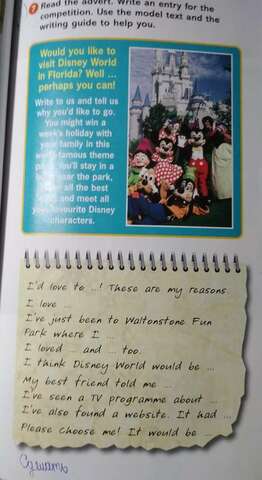 7 Read the advert. Write an entry for the
competition. Use the model text and the
writing guide to help you.
Would you like to
visit Disney World
in Florida? Well ...
perhaps you can!
Write to us and tell us
why you'd like to go.
You might win a
week's holiday with
your family in this
world famous theme
park. You'll stay in a
near the park,
all the best
and meet all
your favourite Disney
characters.
I'd love to ...! These are my reasons.
I love ...
I've just been to Waltonstone Fun
Park where I ...
I loved ... and ... too.
I think Disney World would be ...
My best friend told me ...
I've seen a TV programme about ...
I've also found a website. It had ...
Please choose me! It would be ...
Сдешать